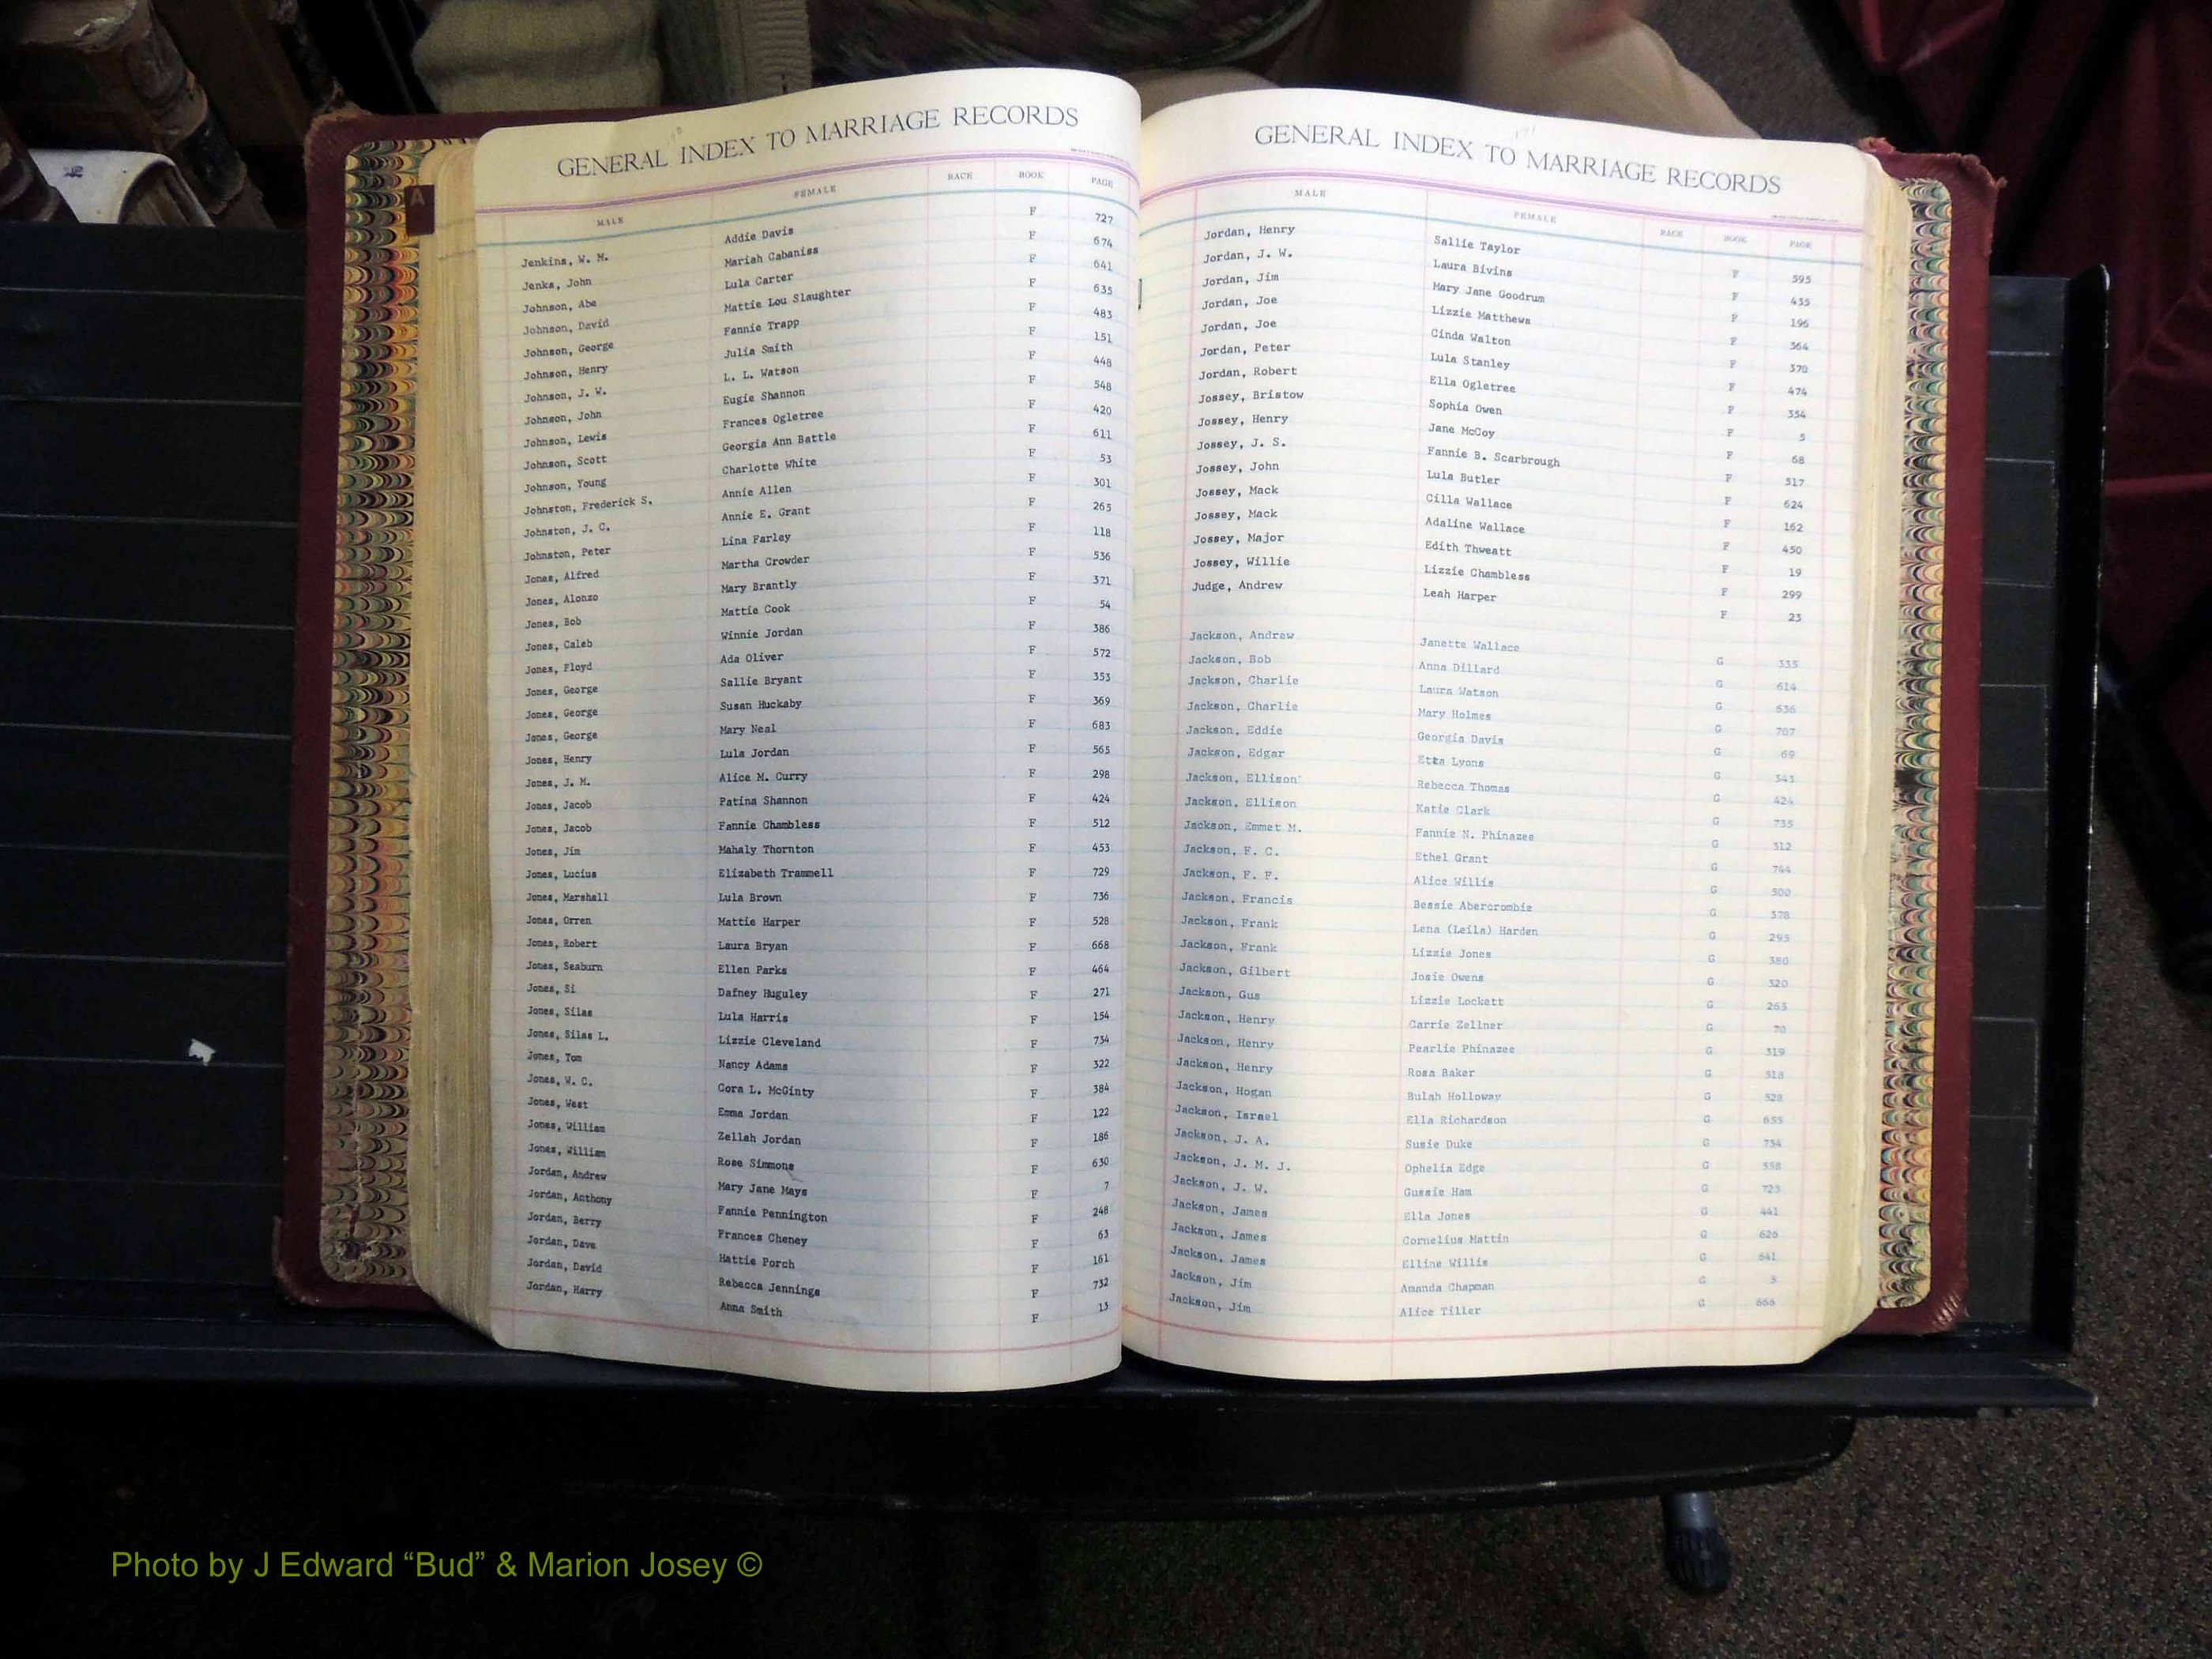 GENERAL INDEX TO MARRIAGE RECORDS
MALE FEMALE RACE BOOK PAGE
Jenkins, W. M. Addie Davis F 727
Jenks, John Mariah Cabaniss F 674
Johnson, Abe Lula Carter F 641
Johnson, David Mattie Lou Slaughter F 635
Johnson, George Fannie Trapp F 483
Johnson, Henry Julia Smith F 151
Johnson, J. W. L. L. Watson F 448
Johnson, John Eugie Shannon F 548
Johnson, Lewis Frances Ogletree F 420
Johnson, Scott Georgia Ann Battle F 611
Johnson, Young Charlotte White F 53
Johnston, Frederick S. Annie Allen F 301
Johnston, J. C. Annie E. Grant F 265
Johnston, Peter Lina Farley F 118
Jones, Alfred Martha Crowder F 536
Jones, Alonzo Mary Brantly F 371
Jones, Bob Mattie Cook F 54
Jones, Caleb Winnie Jordan F 386
Jones, Floyd Ada Oliver F 572
Jones, George Sallie Bryant F 353
Jones, George Susan Huckaby F 369
Jones, George Mary Neal F 683
Jones, Henry Lula Jordan F 565
Jones, J. M. Alice M. Curry F 298
Jones, Jacob Patina Shannon F 424
Jones, Jacob Fannie Chambless F 512
Jones, Jim Mahaly Thornton F 453
Jones, Lucius Elizabeth Trammell F 729
Jones, Marshall Lula Brown F 736
Jones, Orren Mattie Harper F 528
Jones, Robert Laura Bryan F 668
Jones, Seaburn Ellen Parks F 464
Jones, Si Dafney Huguley F 271
Jones, Silas Lula Harris F 154
Jones, Silas L. Lizzie Cleveland F 734
Jones, Tom Nancy Adams F 322
Jones, W. C. Cora L. McGinty F 384
Jones, West Emma Jordan F 122
Jones, William Zellah Jordan F 186
Jones, William Rose Simmons F 630
Jordan, Andrew Mary Jane Mays F 7
Jordan, Anthony Fannie Pennington F 248
Jordan, Berry Frances Cheney F 63
Jordan, Dave Hattie Porch F 161
Jordan, David Rebecca Jennings F 732
Jordan, Harry Anna Smith F 13
GENERAL INDEX TO MARRIAGE RECORDS
MALE FEMALE RACE BOOK PAGE
Jordan, Henry Sallie Taylor F 595
Jordan, J. W. Laura Bivins F 435
Jordan, Jim Mary Jane Goodrum F 196
Jordan, Joe Lizzie Matthews F 364
Jordan, Joe Cinda Walton F 370
Jordan, Peter Lula Stanley F 474
Jordan, Robert Ella Ogletree F 354
Jossey, Bristow Sophia Owen F 5
Jossey, Henry Jane McCoy F 68
Jossey, J. S. Fannie B. Scarbrough F 517
Jossey, John Lula Butler F 624
Jossey, Mack Cilla Wallace F 162
Jossey, Mack Adaline Wallace F 450
Jossey, Major Edith Thweatt F 19
Jossey, Willie Lizzie Chambless F 299
Judge, Andrew Leah Harper F 23
Jackson, Andrew Janette Wallace G 335
Jackson, Bob Anna Dillard G 614
Jackson, Charlie Laura Watson G 636
Jackson, Charlie Mary Holmes G 707
Jackson, Eddie Georgia Davis G 69
Jackson, Edgar Etta Lyons G 343
Jackson, Ellison Rebecca Thomas G 424
Jackson, Ellison Katie Clark G 735
Jackson, Emmet M. Fannie N. Phinazee G 312
Jackson, F. C. Ethel Grant G 744
Jackson, F. F. Alice Willis G 500
Jackson, Francis Bessie Abercrombie G 378
Jackson, Frank Lena (Leila) Harden G 295
Jackson, Frank Lizzie Jones G 380
Jackson, Gilbert Josie Owens G 320
Jackson, Gus Lizzie Lockett G 263
Jackson, Henry Carrie Zellner G 70
Jackson, Henry Pearlie Phinazee G 319
Jackson, Henry Rosa Baker G 518
Jackson, Hogan Bulah Holloway G 528
Jackson, Israel Ella Richardson G 655
Jackson, J. A. Susie Duke G 734
Jackson, J. M. J. Ophelia Edge G 558
Jackson, J. W. Gussie Ham G 723
Jackson, James Ella Jones G 441
Jackson, James Cornelius Mattin G 626
Jackson, James Elline Willis G 641
Jackson, Jim Amanda Chapman G 3
Jackson, Jim Alice Tiller G 666
A
Photo by J Edward “Bud” & Marion Josey ©